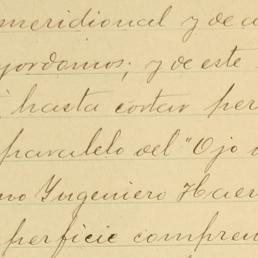 meridional y de a
yordomos; y de este
hasta cortar per
paralelo del "Ojo
no Yngeniero Haer
perficie compren